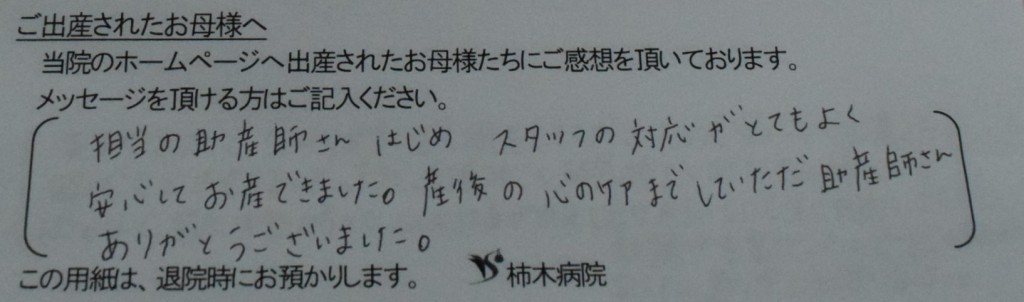 ご出産されたお母様へ
当院のホームページへ出産されたお母様たちにご感想を頂いております。
メッセージを頂ける方はご記入ください。
担当の助産師さんはじめ スタッフの対応がとてもよく
安心してお産できました。産後の心のケアまでしていただだ助産師さん
ありがとうございました。
この用紙は、退院時にお預かりします。 柿木病院